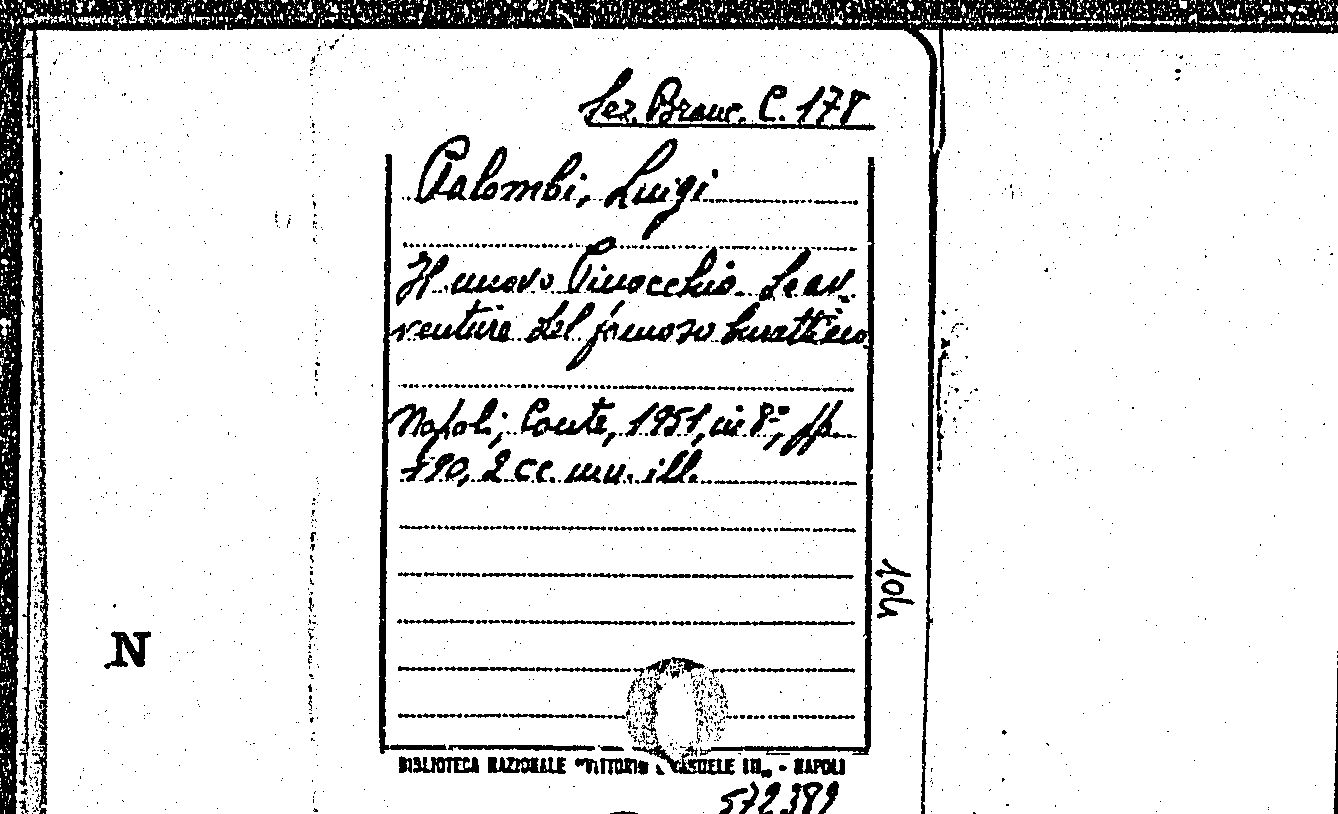 Sez. Branc. C. 178
Palombi, Luigi
Il nuovo Pinocchio. Le av-
venture del famoso burattino.
Napoli, Conte, 1951, in 8º, pp.
190, 2 cc. nn. ill.
104
N
BIBLIOTECA NAZIONALE "VITTORIO EMANUELE III" - NAPOLI
572389